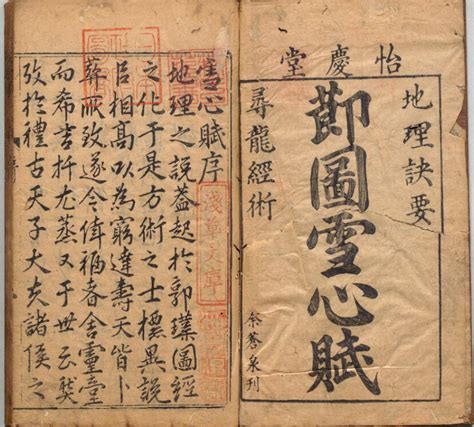 怡慶堂
地理訣要
圖雪心賦
尋龍經術
余蒼泉刊
雪心賦序
地理之說蓋起於郭璞圖經
之化于是方術之士標異說
相高以為窮達壽夭皆卜
葬所致遂令倖福者舍靈臺
而希吉扦尤蒸又于世云
攷於禮古天子大夫諸侯之
淺草文庫